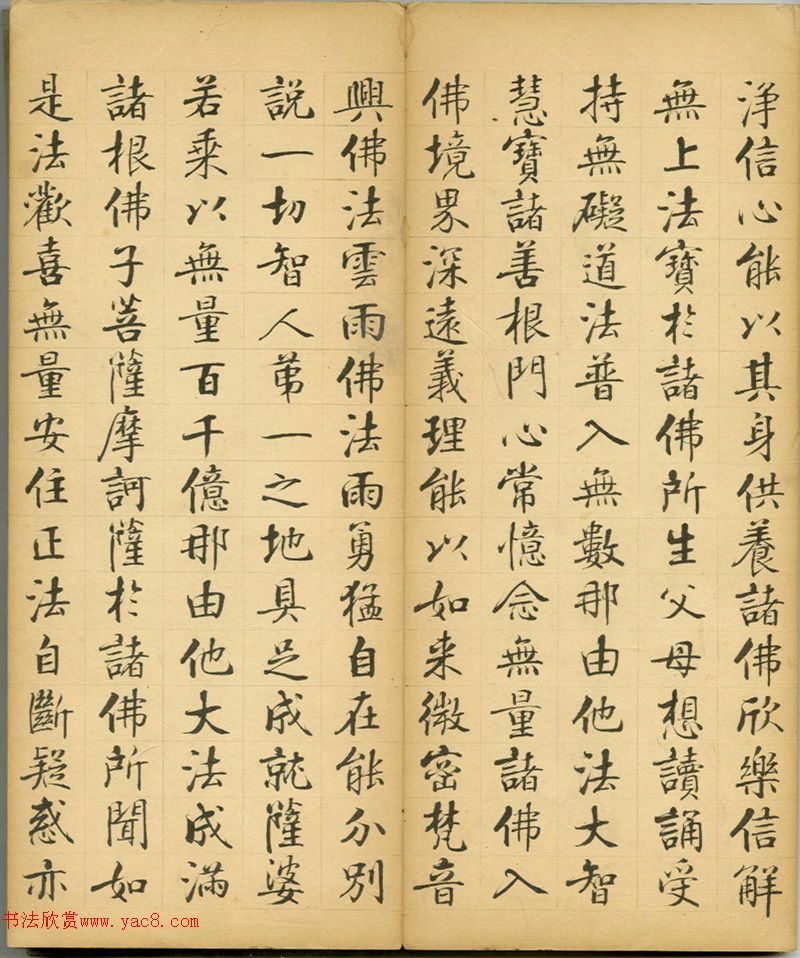 淨信心能以其身供養諸佛欣樂信解
無上法寶於諸佛所生父母想讀誦受
持無礙道法普入無數那由他法大智
慧寶諸善根門心常憶念無量諸佛入
佛境界深遠義理能以如来微密梵音
興佛法雲雨佛法雨勇猛自在能分别
説一切智人第一之地具足成就薩婆
若乘以無量百千億那由他大法成滿
諸根佛子菩薩摩訶薩於諸佛所聞如
是法歡喜無量安住正法自斷疑惑亦
书法欣赏www.yac8.com